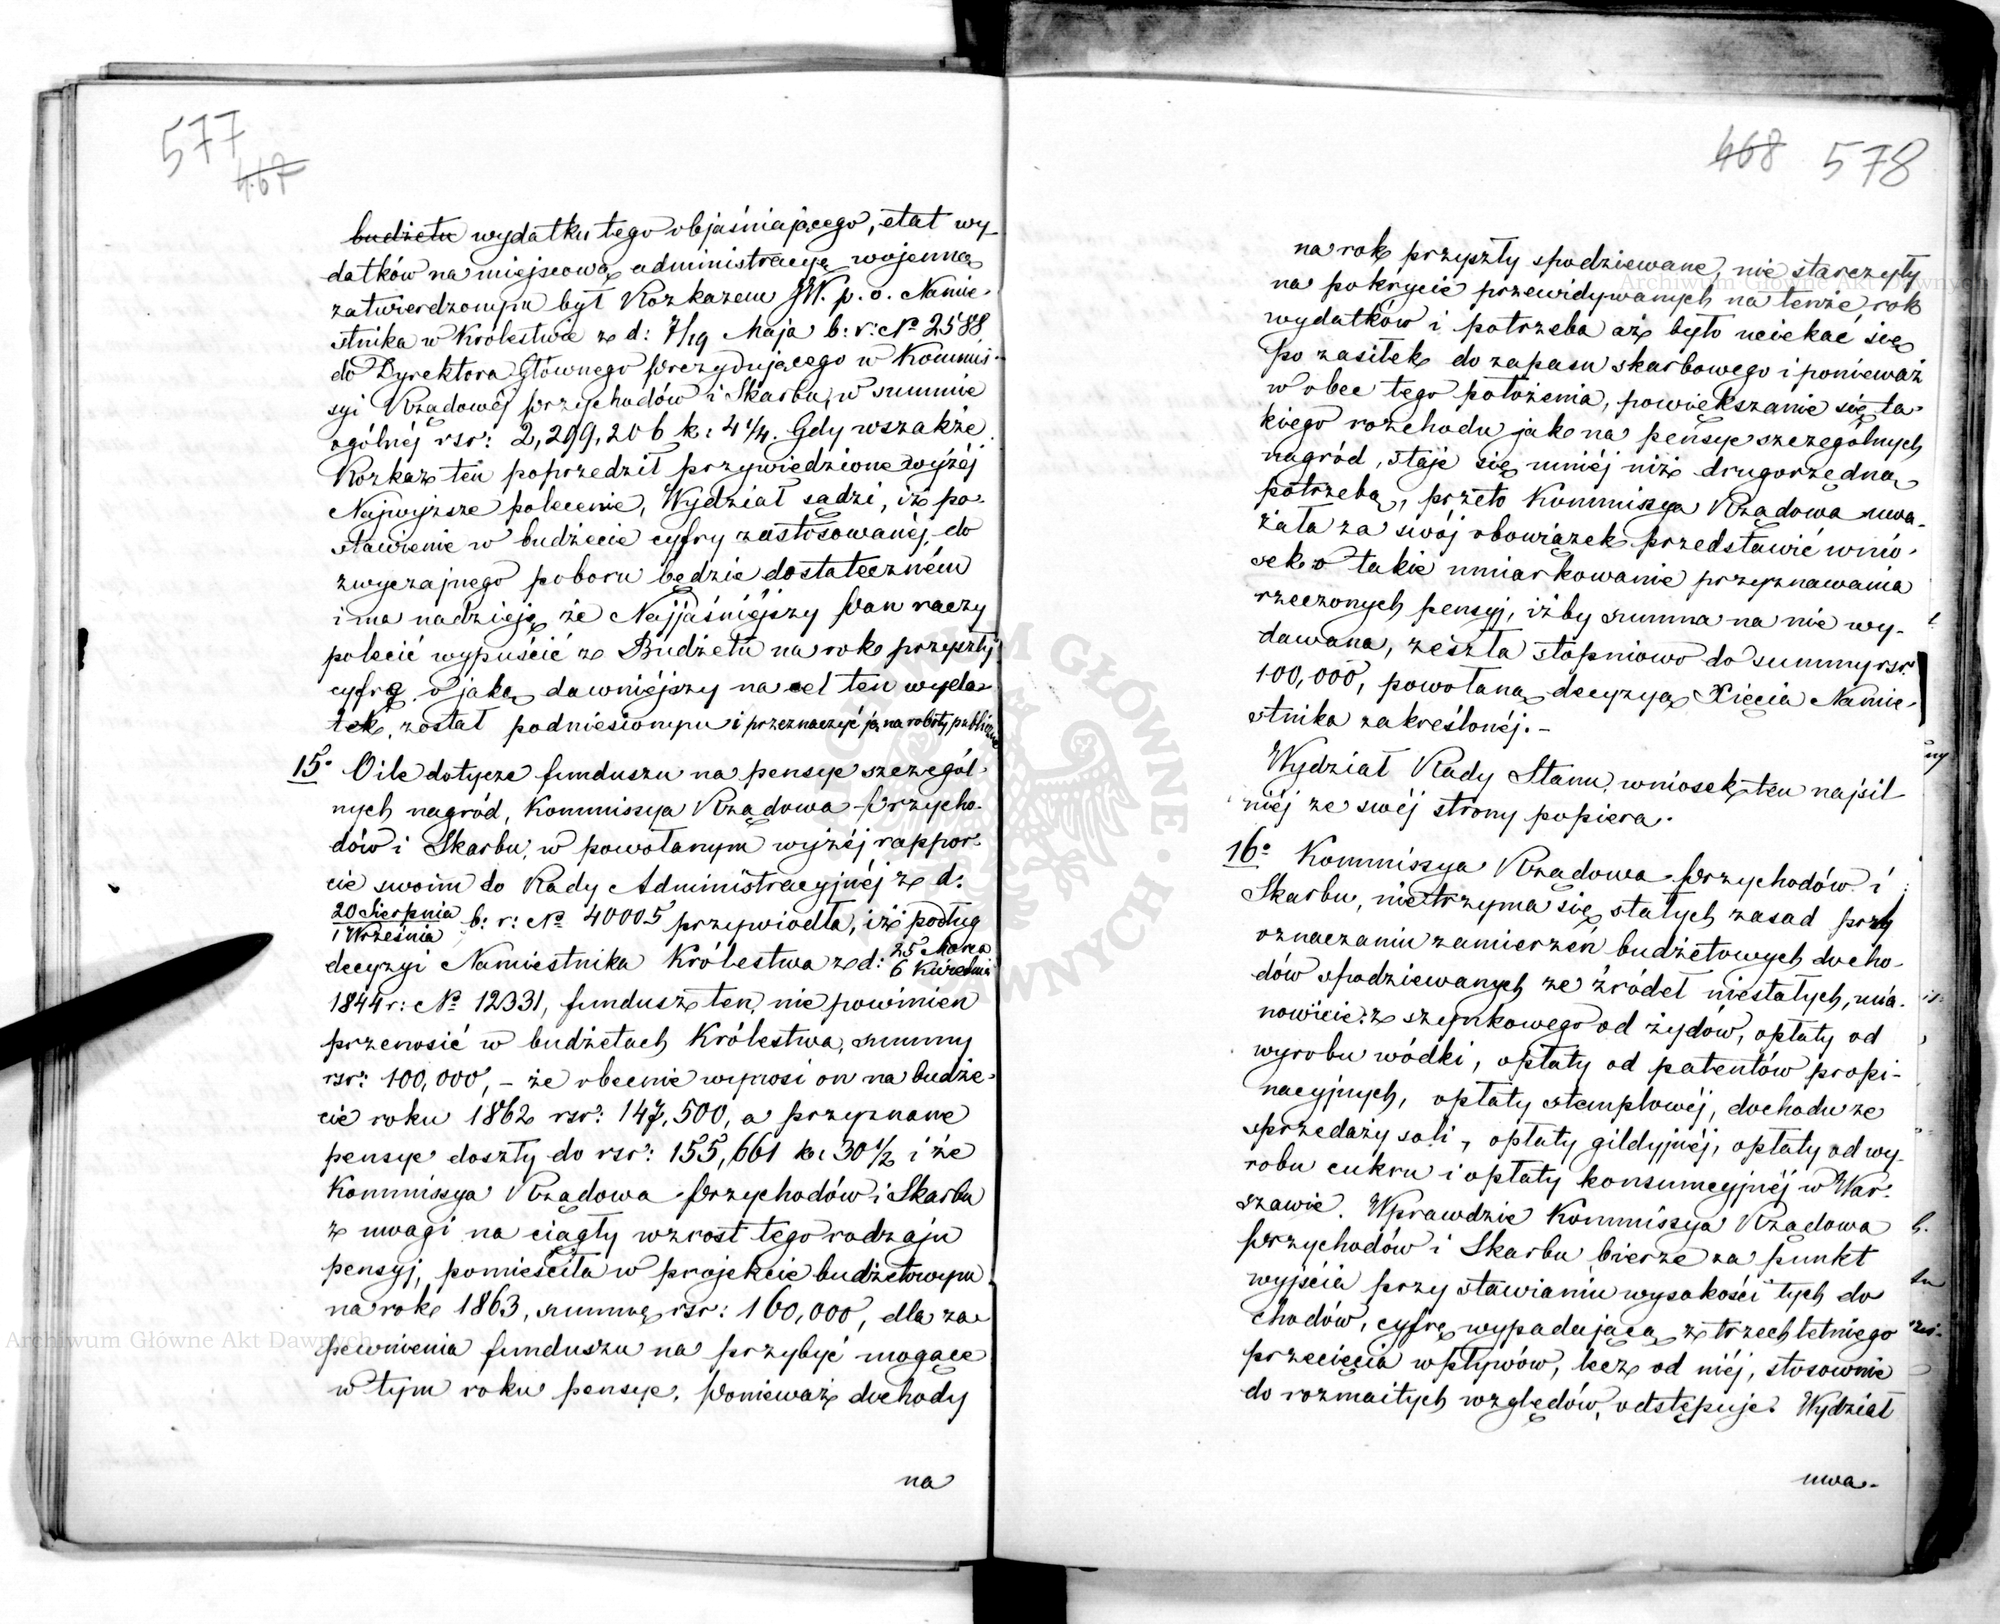 577
467
budżetu wydatku tego objaśniającego, etat wy-
datków na miejscową administracyę wojenną
zatwierdzonym był Rozkazem JW. p. o. Namie-
stnika w Królestwie z d: 7/19 Maja b: r: № 2588,
do Dyrektora Głównego Prezydującego w Kommis-
syi Rządowéj Przychodów i Skarbu, w summie
ogólnéj rsr: 2,299,206 k: 4 1/4. Gdy wszakże
Rozkaz ten poprzedził przywiedzione wyżéj
Najwyższe polecenie, Wydział sądzi, iż po-
stawienie w budżecie cyfry zastosowanéj do
zwyczajnego poboru będzie dostateczném
i ma nadzieję, że Najjaśniejszy Pan raczy
polecić wypuścić z Budżetu na rok przyszły
cyfrę o jaką dawniéjszy na cel ten wyda-
tek, został podniesionym i przeznaczyć ją na roboty publiczne
15° O ile dotycze funduszu na pensye szczegól-
nych nagród, Kommissya Rządowa Przycho-
dów i Skarbu, w powołanym wyżéj rappor-
cie swoim do Rady Administracyjnéj z d:
20 Sierpnia / 1 Września b: r: № 40005 przywiodła, iż podług
decyzyi Namiestnika Królestwa z d: 25 Marca / 6 Kwietnia
1844 r: № 12331, fundusz ten, nie powinien
przenosić w budżetach Królestwa, summy
rsr: 100,000, – że obecnie wynosi on na budże-
cie roku 1862 rsr: 147,500, a przyznane
pensye doszły do rsr: 155,661 k: 30 1/2 i że
Kommissya Rządowa Przychodów i Skarbu
z uwagi na ciągły wzrost tego rodzaju
pensyj, pomieściła w projekcie budżetowym
na rok 1863, summę rsr: 160,000, dla za-
pewnienia funduszu na przybyć mogące
w tym roku pensye. Ponieważ dochody
na
468 578
na rok przyszły spodziewane, nie starczyły
na pokrycie przewidywanych na tenże rok
wydatków i potrzeba aż było uciekać się
po zasiłek do zapasu skarbowego i ponieważ
w obec tego położenia, powiększanie się ta-
kiego rozchodu jak na pensye szczególnych
nagród, staje się mniéj niż drugorzędną
potrzebą, przeto Kommissya Rządowa uwa-
żała za swój obowiązek przedstawić wnio-
sek o takie umiarkowanie przyznawania
rzeczonych pensyj, iżby summa na nie wy-
dawana, zeszła stopniowo do summy rsr:
100,000, powołaną decyzyą Xięcia Namie-
stnika zakreślonéj. –
Wydział Rady Stanu, wniosek ten najsil-
niéj ze swéj strony popiera.
16° Kommissya Rządowa Przychodów i
Skarbu, nie trzyma się stałych zasad przy
oznaczaniu zamierzeń budżetowych docho-
dów spodziewanych ze źródeł niestałych, mia-
nowicie: z szynkowego od żydów, opłaty od
wyrobu wódki, opłaty od patentów propi-
nacyjnych, opłaty stemplowéj, dochodu ze
sprzedaży soli, opłaty gildyjnéj, opłaty od wy-
robu cukru i opłaty konsumcyjnéj w War-
szawie. Wprawdzie Kommissya Rządowa
Przychodów i Skarbu bierze za punkt
wyjścia przy stawianiu wysokości tych do
chodów, cyfrę wypadającą z trzechletniego
przecięcia wpływów, lecz od niéj, stosownie
do rozmaitych względów, odstępuje. Wydział
uwa-
Archiwum Główne Akt Dawnych
Archiwum Główne Akt Dawnych
ARCHIWUM GŁÓWNE · AKT DAWNYCH ·